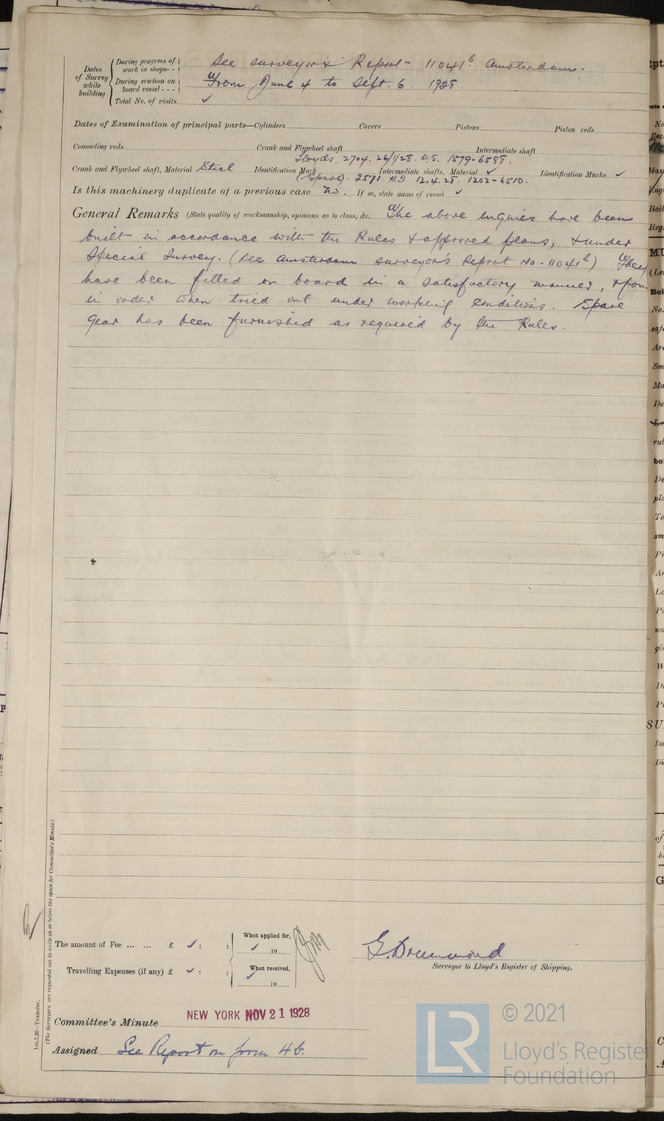 Dates of Survey while building
During progress of work in shops - - See surveyor's Report - 11041ᵇ Amsterdam.
During erection on board vessel - - - From June 4 to Sept. 6 1928
Total No. of visits ✓
Dates of Examination of principal parts—Cylinders Covers Pistons Piston rods
Connecting rods Crank and Flywheel shaft Intermediate shaft
Lloyds. 2704. 26/1/28. 1579-6598.
Crank and Flywheel shaft, Material Steel Identification Mark Intermediate shafts, Material ✓ Identification Marks ✓
(Spare). 2571 12.4.28. 1202-6510.
Is this machinery duplicate of a previous case No. If so, state name of vessel ✓
General Remarks (State quality of workmanship, opinions as to class, &c. The above engines have been
built in accordance with the Rules & approved plans, & under
Special Survey. (See Amsterdam surveyor's Report No - 11041ᵇ) They
have been fitted on board in a satisfactory manner, &
in order when tried out under working conditions. Spare
Gear has been furnished as required by the Rules.
(The Surveyors are requested not to write on or below the space for Committee's Minute.)
The amount of Fee ... ... £ ✓ : :
When applied for, ✓ 19
Travelling Expenses (if any) £ ✓ : :
When received, ✓ 19
G. Drummond
Surveyor to Lloyd's Register of Shipping.
Committee's Minute NEW YORK NOV 21 1928
Assigned See Report on form 4b.
LR
© 2021
Lloyd's Register
Foundation